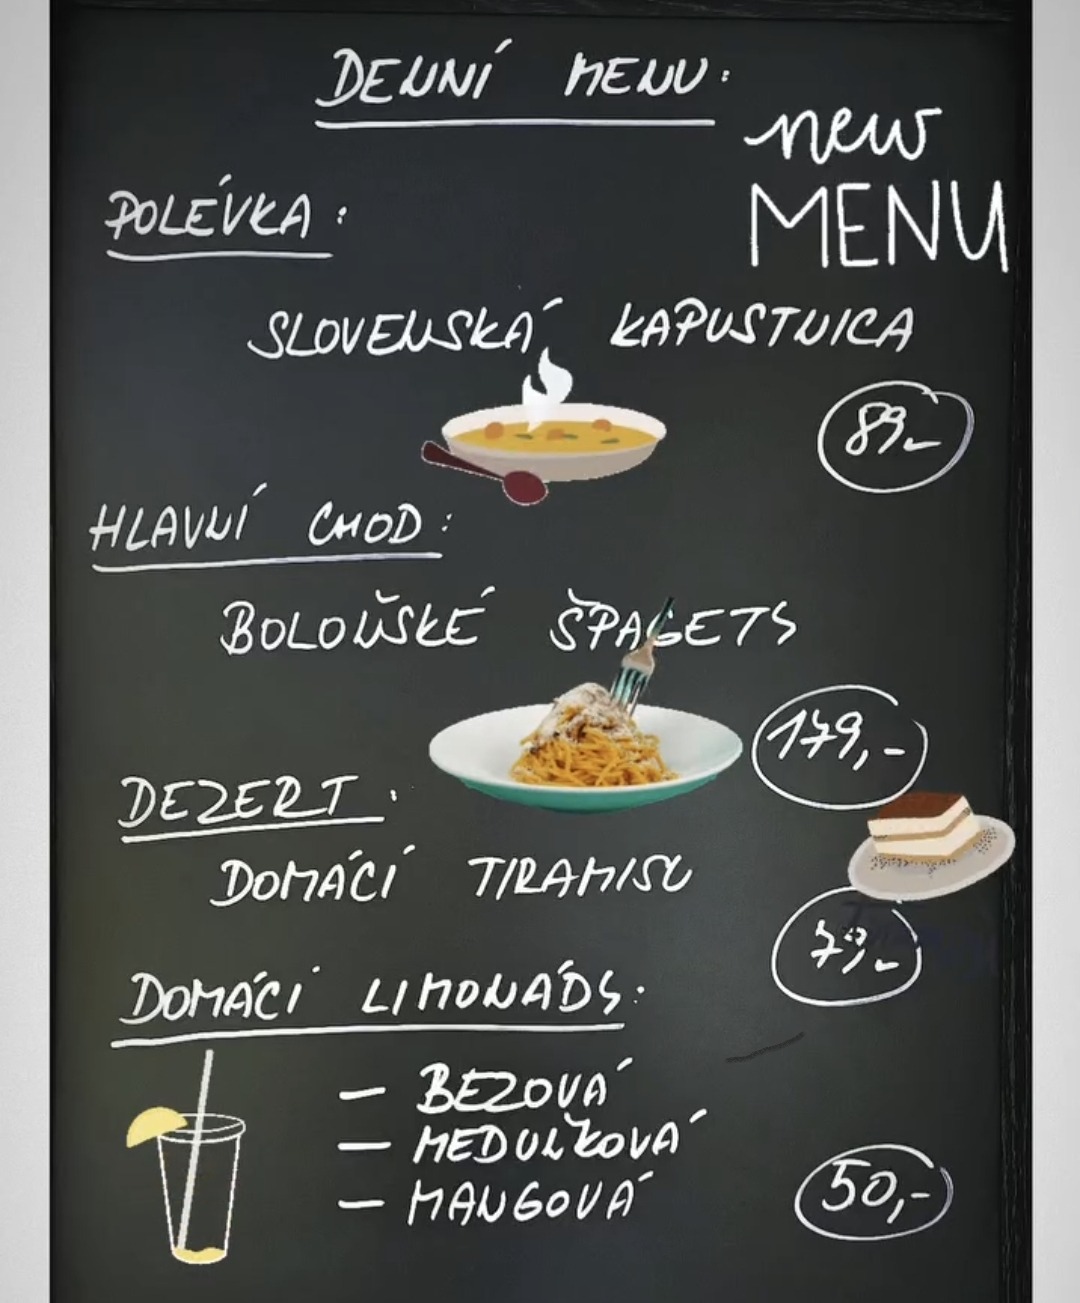 DENNÍ MENU:
new
MENU
POLÉVKA:
SLOVENSKÁ KAPUSTNICA
89,-
HLAVNÍ CHOD:
BOLOŇSKÉ ŠPAGETY
179,-
DEZERT:
DOMÁCÍ TIRAMISU
79,-
DOMÁCÍ LIMONÁDY:
- BEZOVÁ
- MEDUŇKOVÁ
- MANGOVÁ
50,-